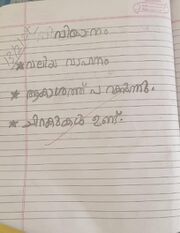 വിമാനം
* വലിയ വാഹനം
* ആകാശത്ത് പറക്കുന്നു.
* ചിറകുകൾ ഉണ്ട്.